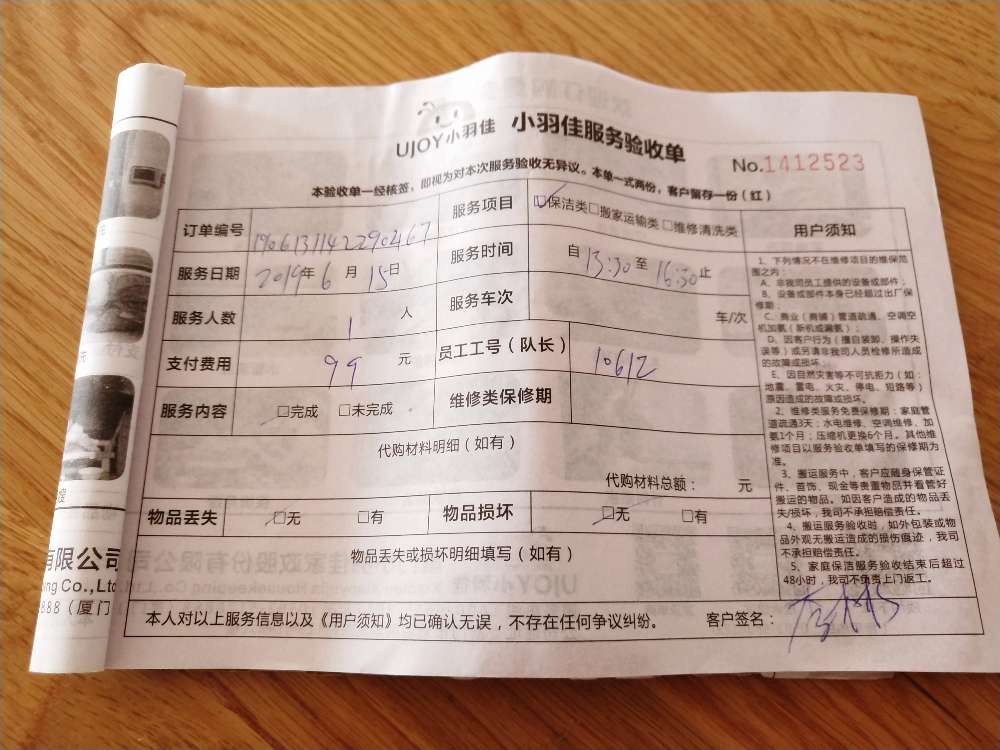 UJOY小羽佳 小羽佳服务验收单
No.1412523
本验收单一经核签，即视为对本次服务验收无异议。本单一式两份，客户留存一份（红）
订单编号 1906131142290467 服务项目 ☑保洁类□搬家运输类□维修清洗类 用户须知
服务日期 2019年6月15日 服务时间 自13:30至16:30止
服务人数 1人 服务车次 车/次
支付费用 99元 员工工号（队长） 10612
服务内容 □完成 □未完成 维修类保修期
代购材料明细（如有）
代购材料总额： 元
物品丢失 □无 □有 物品损坏 □无 □有
物品丢失或损坏明细填写（如有）
1、下列情况不在维修项目的维保范
围之内：
A、非我司员工提供的设备或部件；
B、设备或部件本身已经超过出厂保
修期；
C、商业（商铺）管道疏通、空调空
机加氨（新机或漏氨）；
D、因客户行为（擅自装卸、操作失
误等）或另请非我司人员检修所造成
的故障或损坏；
E、因自然灾害等不可抗拒力（如：
地震、雷电、火灾、停电、短路等）
原因造成的故障或损坏。
2、维修类服务免费保修期：家庭管
道疏通3天；水电维修、空调维修、加
氨1个月；压缩机更换6个月。其他维
修项目以服务验收单填写的保修期为
准。
3、搬运服务中，客户应随身保管证
件、首饰、现金等贵重物品并看管好
搬运的物品。如因客户造成的物品丢
失/损坏，我司不承担赔偿责任。
4、搬运服务验收时，如外包装或物
品外观无搬运造成的损伤痕迹，我司
不承担赔偿责任。
5、家庭保洁服务验收结束后超过
48小时，我司不负责上门返工。
本人对以上服务信息以及《用户须知》均已确认无误，不存在任何争议纠纷。 客户签名：
有限公司
ong Co.,Ltd
888（厦门